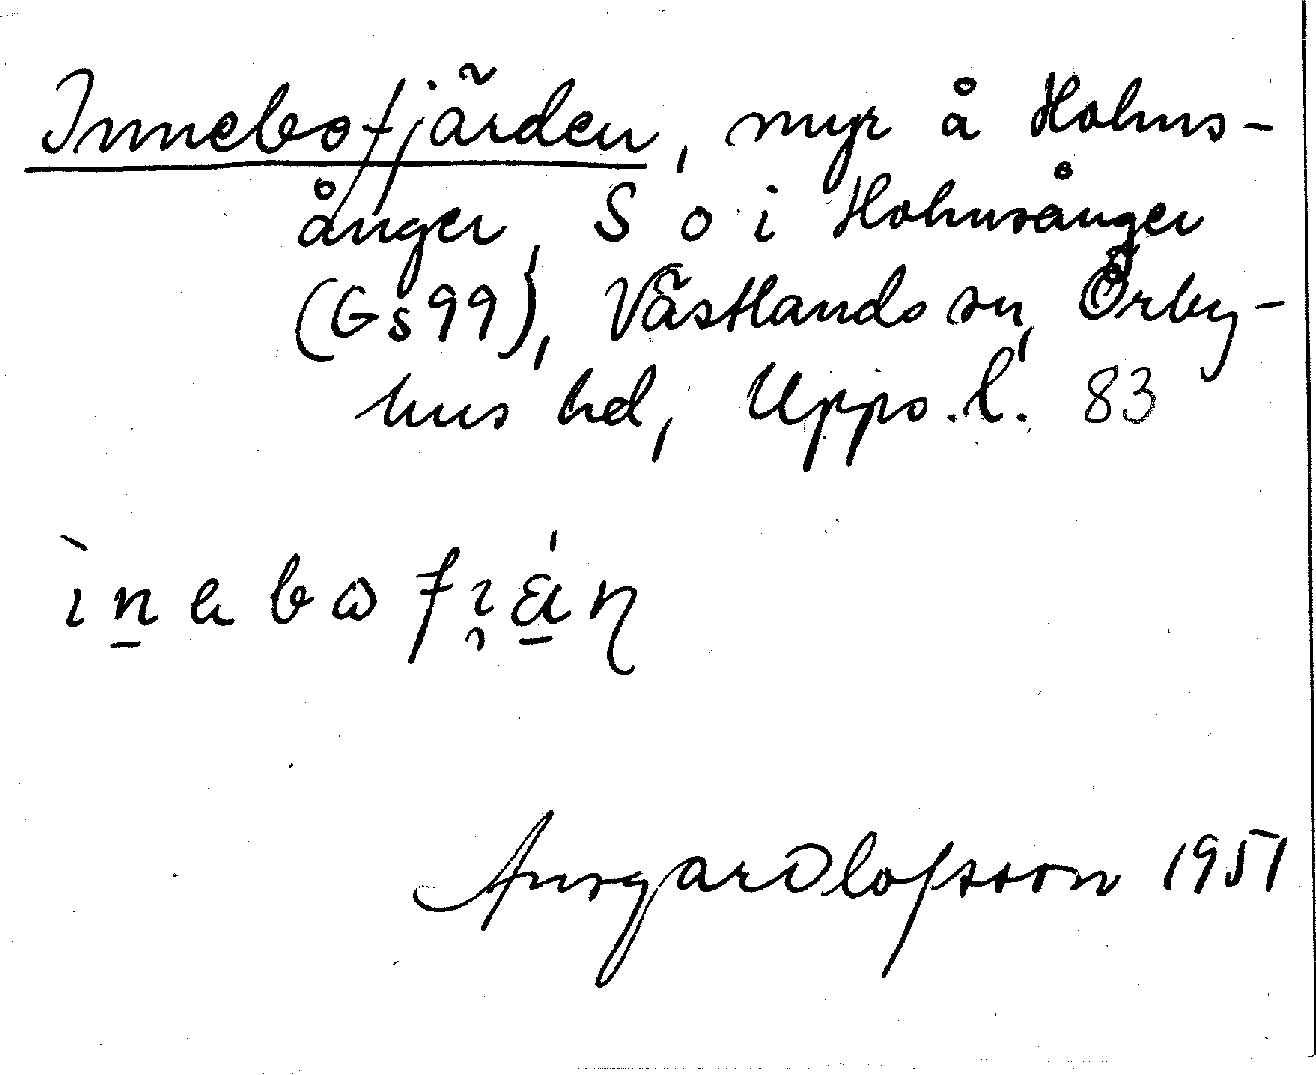 Innebofjärden, myr å Holms-
ånger, S o i Holmsånger
(Gs 99), Västlands sn, Örby-
hus hd, Upps. l. 83
Ansgar Olofsson 1951